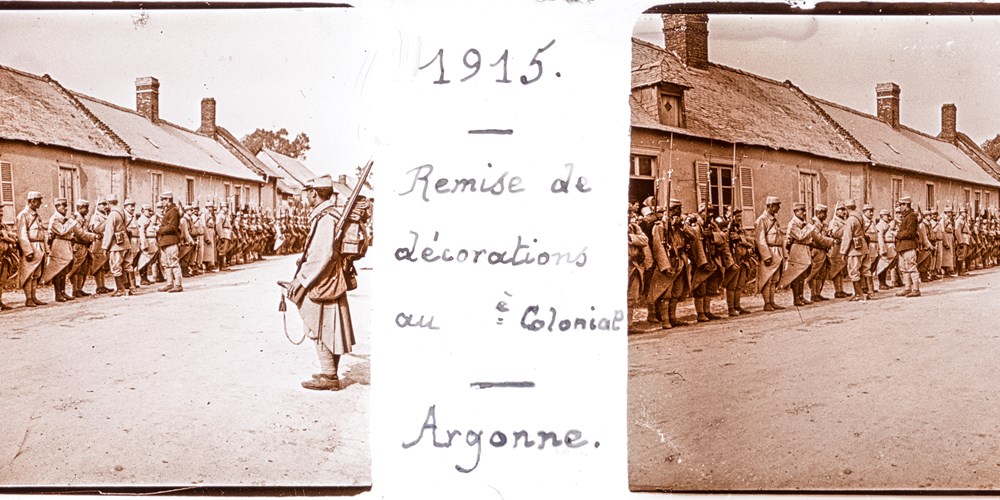 1915.
Remise de
décorations
au è Colonial
Argonne.